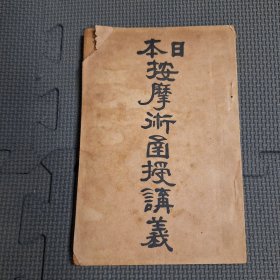 日本
按摩術函授講義